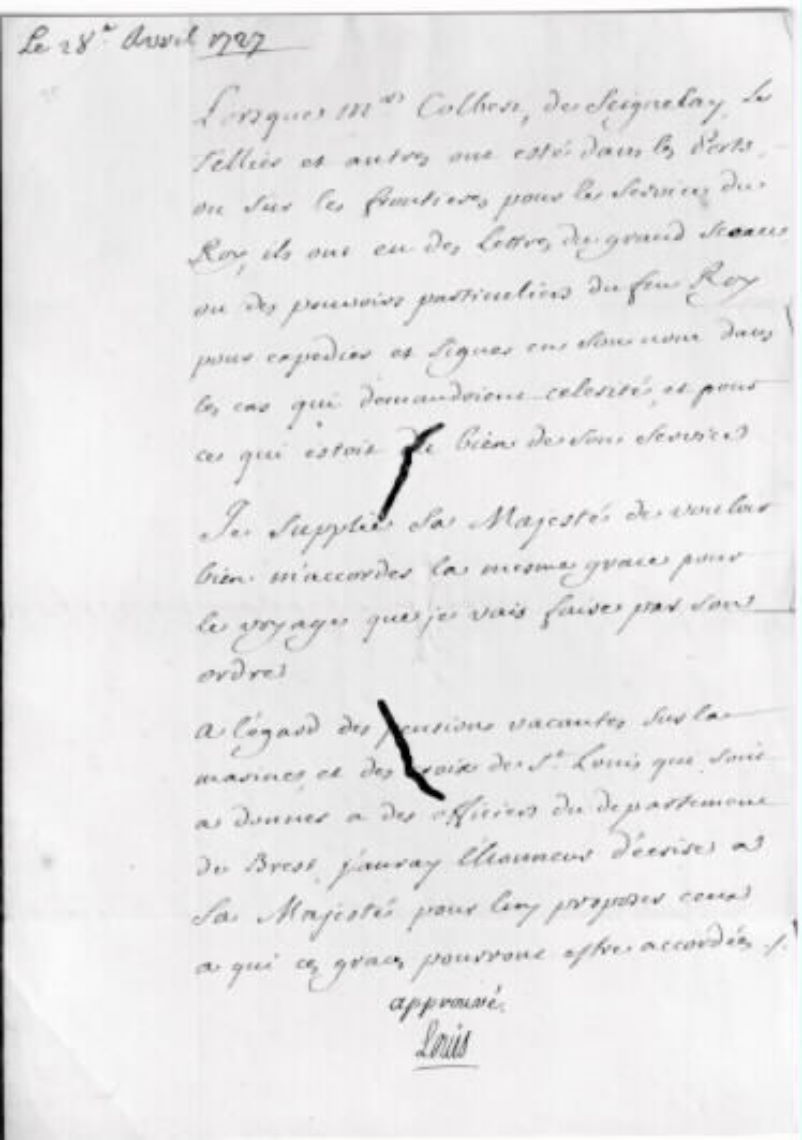 Le 28e Avril 1727
Lorsque Mrs Colbert, de Seignelay, Le
Tellier et autres ont esté dans les Ports
ou sur les frontieres pour le Service du
Roy, ils ont eu des Lettres du grand Sceau
ou des pouvoirs particuliers du feu Roy
pour expedier et signer en Son nom dans
les cas qui demandoient celerité, et pour
ce qui estoit du bien de Son Service
Je Supplie Sa Majesté de vouloir
bien m'accorder la mesme grace pour
le voyage que je vais faire par Son
ordre
A l'égard des pensions vacantes sur la
marine et des croix de St. Louis qui sont
a donner a des officiers du departement
de Brest, j'auray l'honneur d'écrire a
Sa Majesté pour luy proposer ceux
a qui ces graces pourront estre accordées ./.
approuvé.
Louis